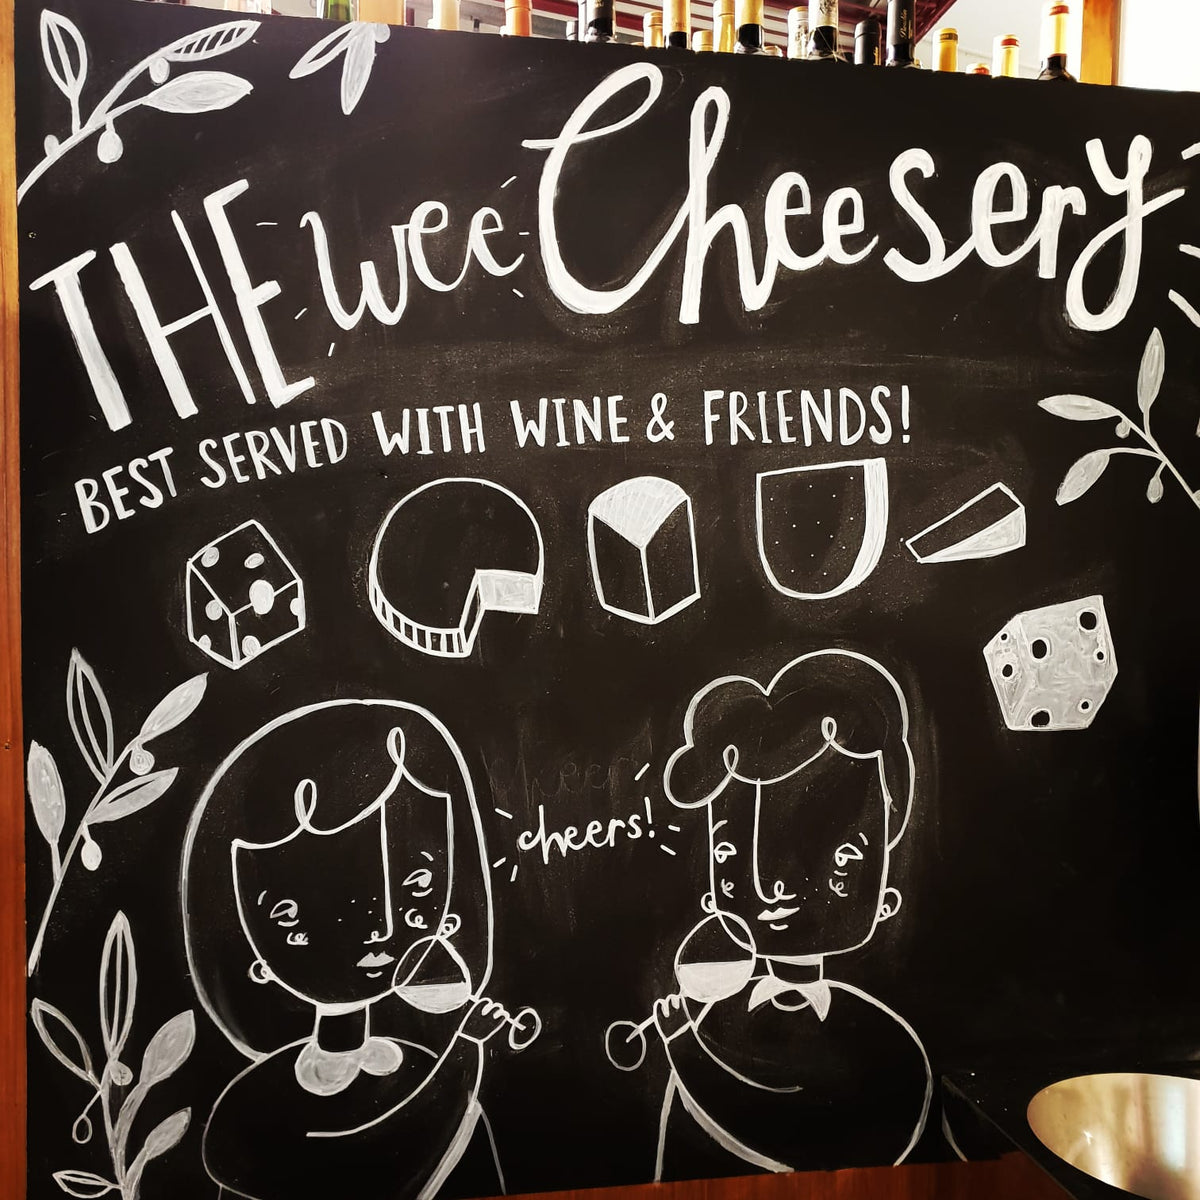 THE wee Cheesery
BEST SERVED WITH WINE & FRIENDS!
cheers!